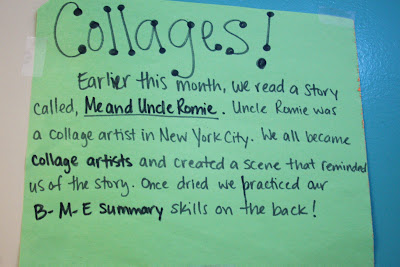 Collages!
Earlier this month, we read a story
called, Me and Uncle Romie. Uncle Romie was
a collage artist in New York City. We all became
collage artists and created a scene that reminded
us of the story. Once dried we practiced our
B-M-E Summary skills on the back!